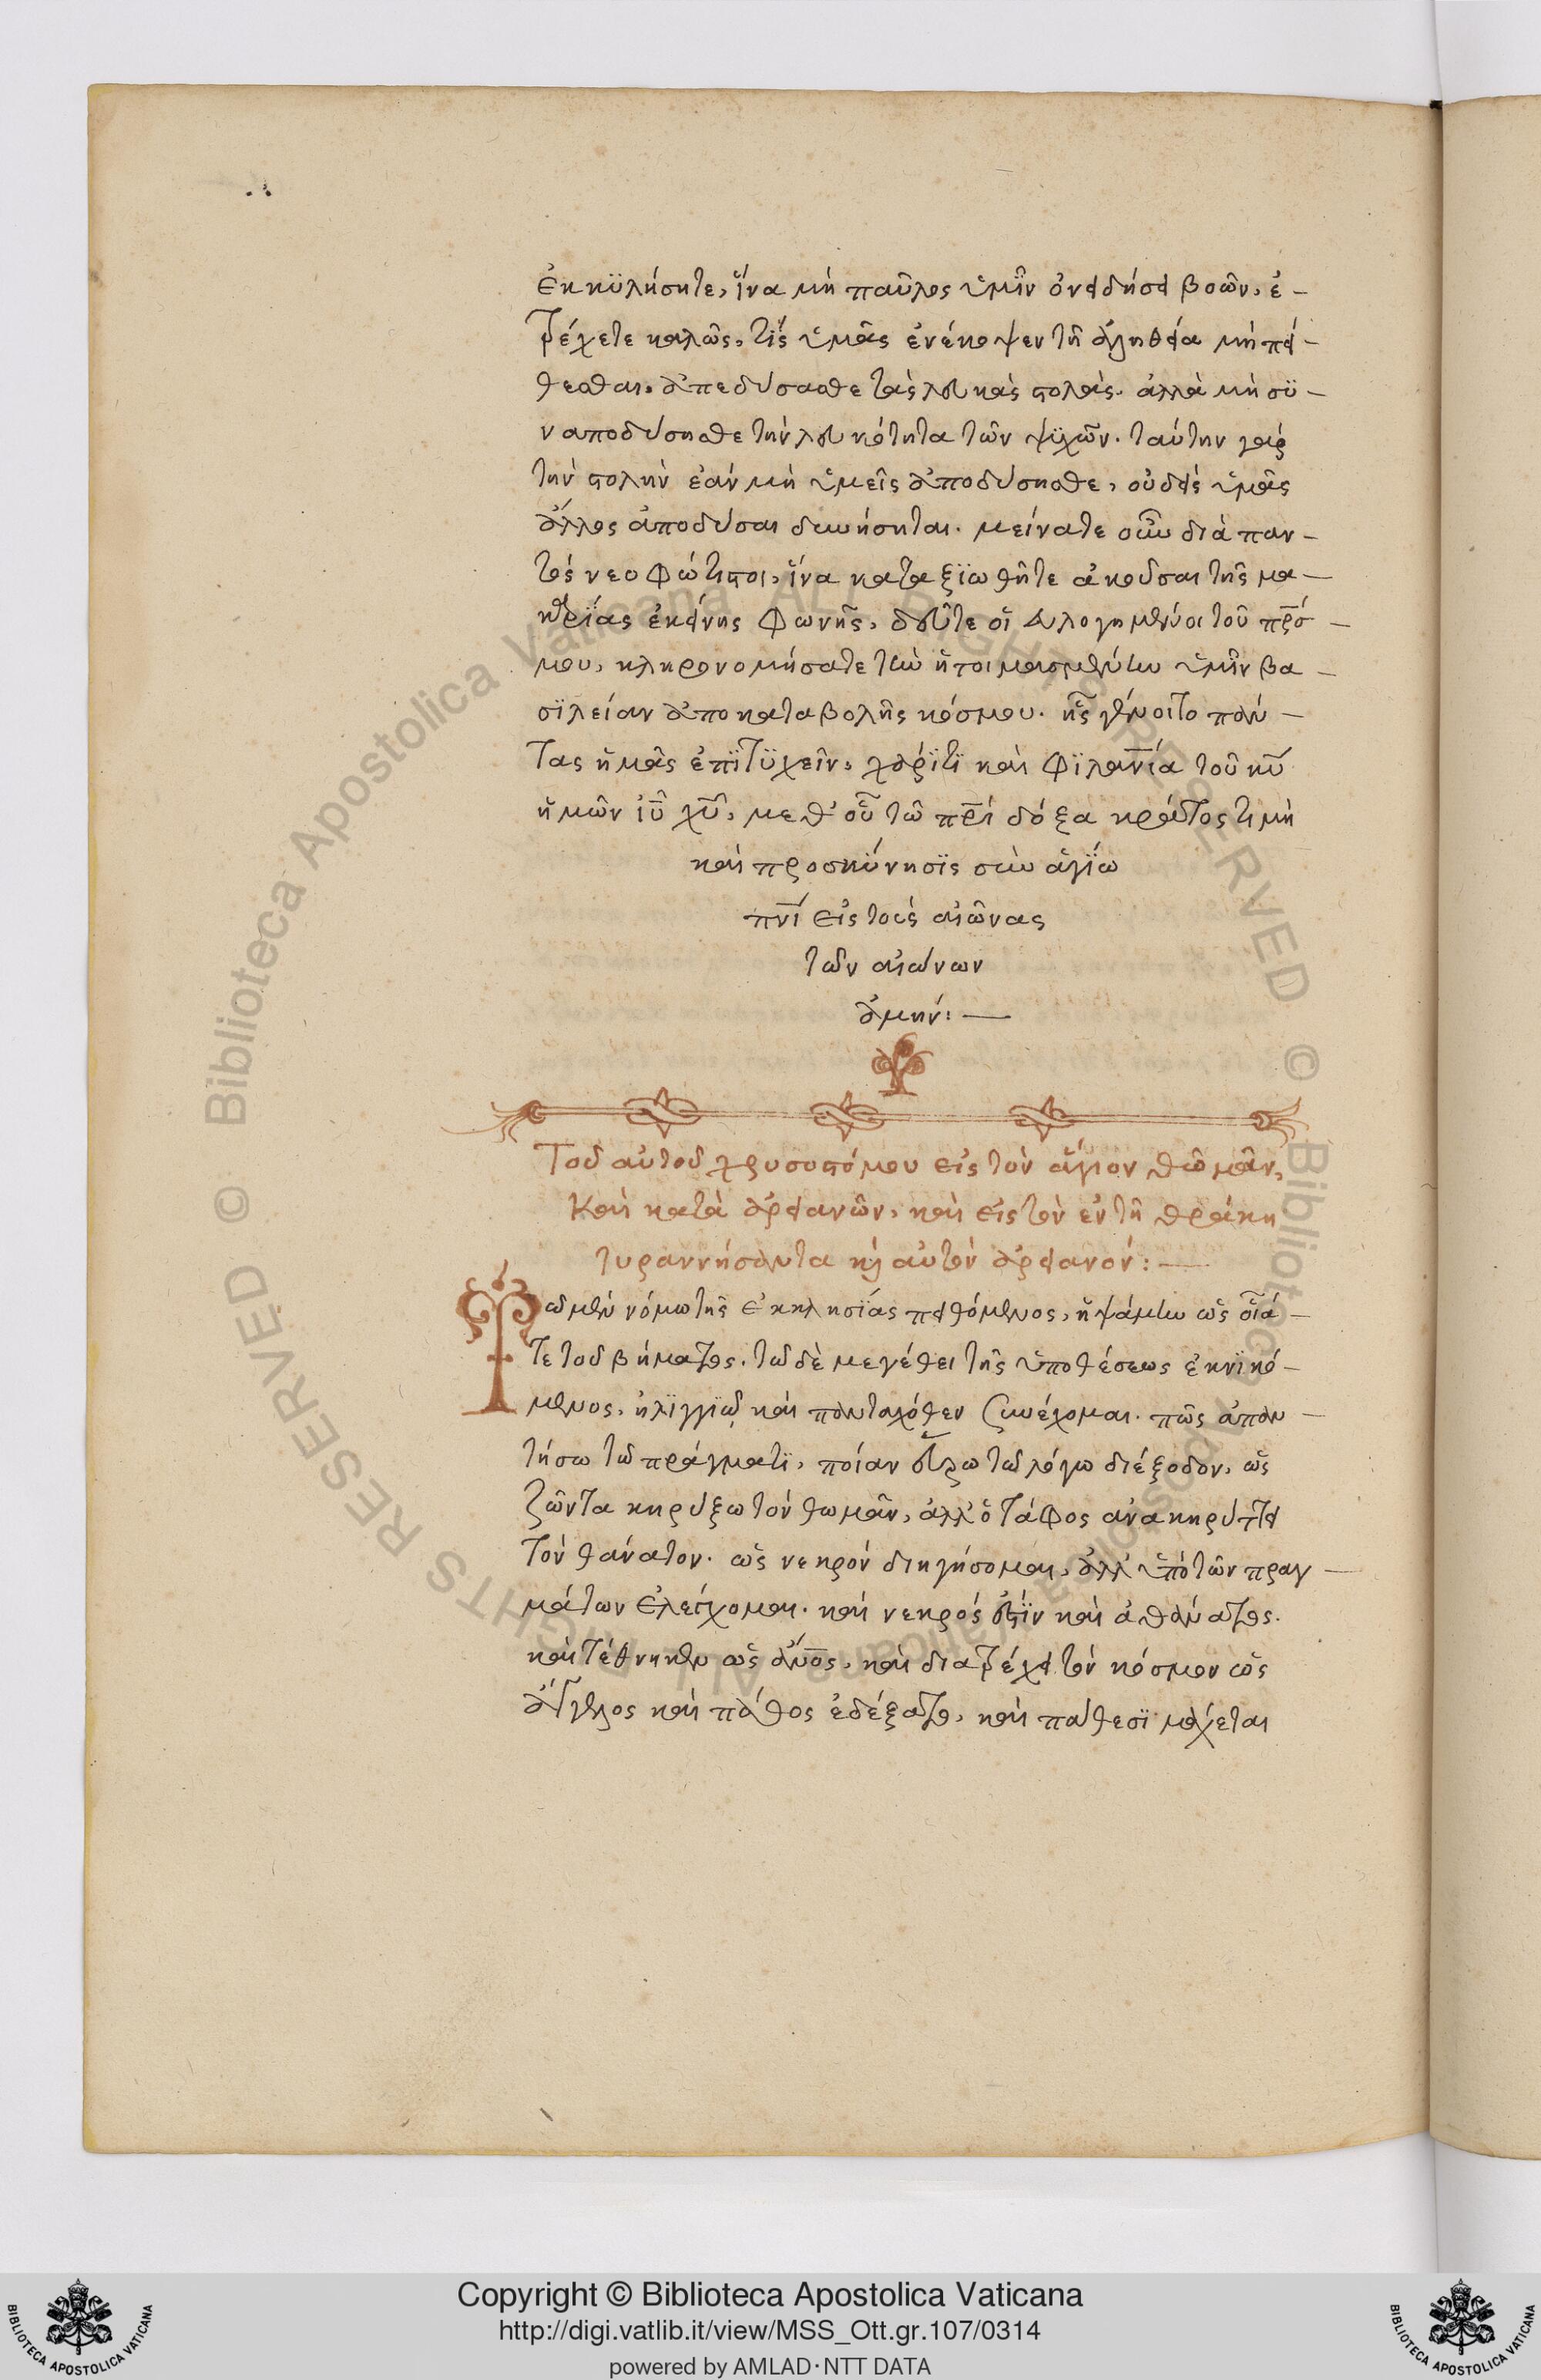 ἐκκϋλήσητε, ἵνα μὴ παῦλος ὑμῖν ὀνειδήσει βοῶν, ἐ-
τρέχετε καλῶς, τίς ὑμᾶς ἐνέκοψεν τῆ ἀληθεία μὴ πεί-
θεσθαι. ἀπεδύσασθε τὰς λευκὰς στολάς. ἀλλὰ μὴ σϋ-
ναποδύσησθε τὴν λευκότητα τῶν ψϋχῶν. ταύτην γὰρ
τὴν στολὴν ἐὰν μὴ ὑμεῖς ἀποδύσησθε, οὐδεὶς ὑμᾶς
ἄλλος ἀποδύσαι δυνήσηται. μείνατε οὖν διὰ παν-
τὸς νεοφώτιστοι, ἵνα καταξϊωθῆτε ἀκοῦσαι τῆς μα-
καρΐας ἐκείνης φωνῆς, δεῦτε οἱ εὐλογημένοι τοῦ πρσ
μου, κληρονομήσατε τὴν ἡτοιμασμένην ὑμῖν βα-
σϊλείαν ἀπο καταβολῆς κόσμου. ἧς γένοιτο πάν-
τας ἡμᾶς ἐπϊτϋχεῖν, χάρϊτϊ καὶ φϊλανία τοῦ κυ
ἡμῶν ιυ χυ, μεθ' οὗ τῶ πρι δόξα κράτος τιμὴ
καὶ προσκΰνησϊς σὺν ἁγΐω
πνι εἰς τοὺς αἰῶνας
τῶν αἰώνων
ἀμήν:—
Τοῦ αὐτοῦ χρυσοστόμου εἰς τὸν ἅγιον θωμᾶν,
Καὶ κατὰ ἀρειανῶν, καὶ εἰς τὸν ἐν τῆ θράκη
τυραννήσαντα καὶ αὐτὸν ἀρειανόν:—
Τῶ μὲν νόμω τῆς ἐκκλησΐας πειθόμενος, ἡψάμην ὡς οἷά-
τε τοῦ βήματος. τῶ δὲ μεγέθει τῆς ὑποθέσεως ἐκνϊκό-
μενος, ἠλϊγγϊῶ καὶ πανταχόθεν συνέχομαι. πῶς ἀπαν-
τήσω τῶ πράγματϊ, ποίαν εὕρω τῶ λόγω διέξοδον, ὡς
ζῶντα κηρύξω τὸν θωμᾶν, ἀλλ' ὁ τάφος ἀνακηρύττει
τὸν θάνατον. ὡς νεκρὸν διηγήσομαι, ἀλλ' ὑπὸ τῶν πραγ-
μάτων ἐλείγχομαι. καὶ νεκρός ἐστϊν καὶ ἀθάνατος.
καὶ τέθνηκεν ὡς ἄνος, καὶ διατρέχει τὸν κόσμον ὡς
ἄγγελος καὶ πάθος ἐδέξατο, καὶ πάθεσϊ μάχεται
Copyright © Biblioteca Apostolica Vaticana
http://digi.vatlib.it/view/MSS_Ott.gr.107/0314
powered by AMLAD·NTT DATA